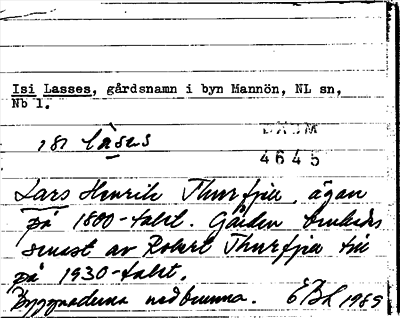 Isi Lasses, gårdsnamn i byn Mannön, NL sn,
Nb 1.
DAUM
isi làsɛs
4645
Lars Henrik Thurfjell, ägare
på 1800-talet. Gården brukades
senast av Robert Thurfjell till
på 1930-talet.
Byggnaderna nedbrunna. EBL 1989